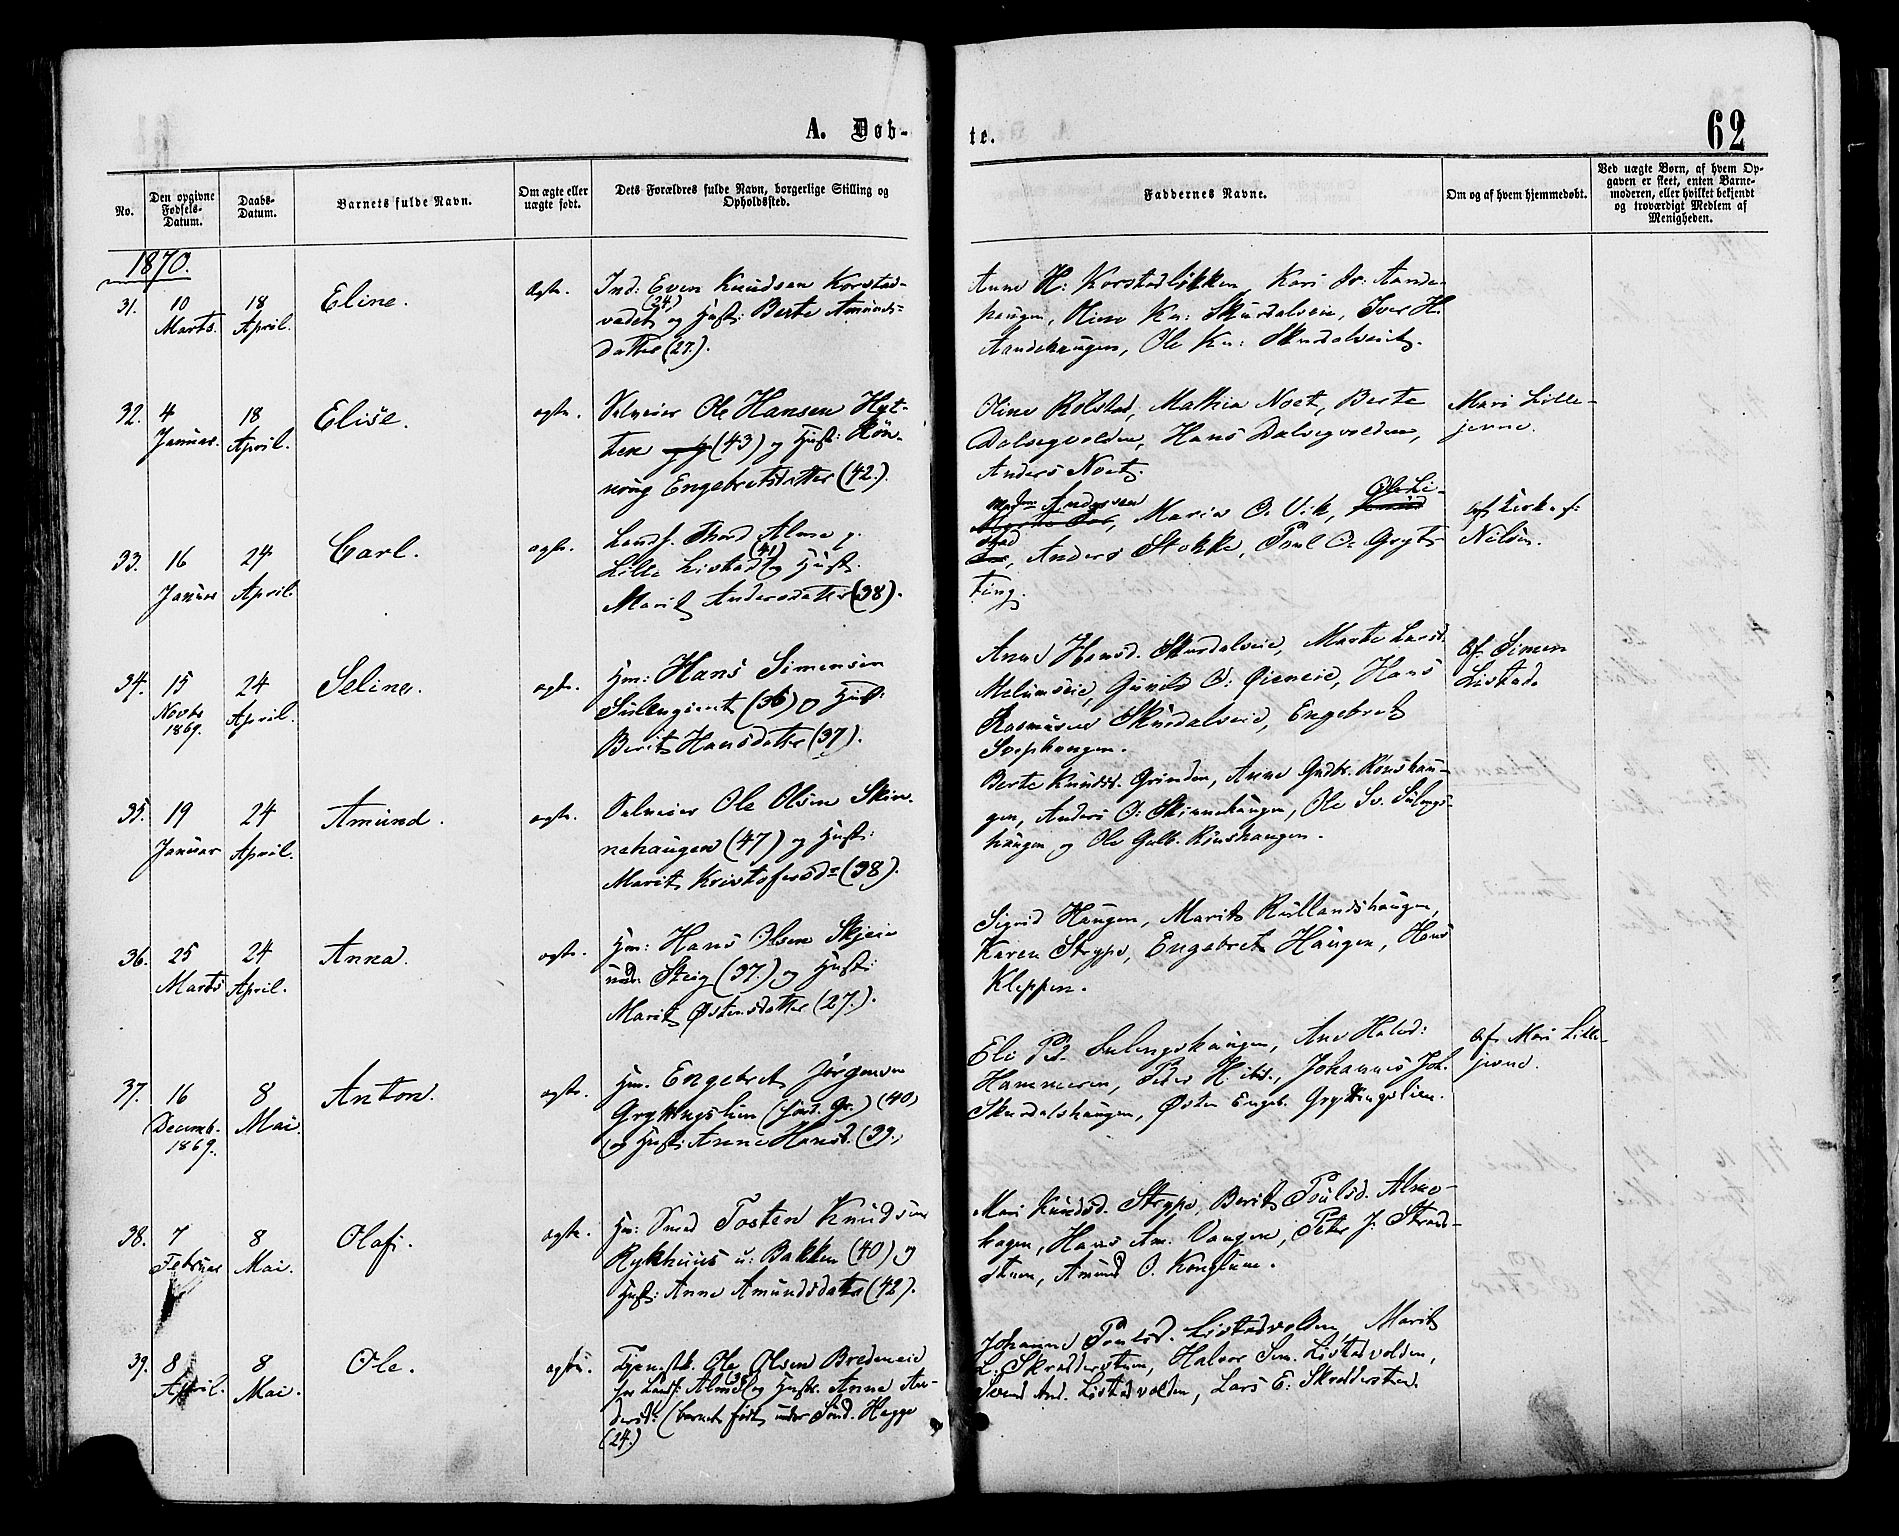 A. Døb-
te.
62
No.
Den opgivne Fødsels-Datum.
Daabs-Datum.
Barnets fulde Navn.
Om ægte eller uægte født.
Dets Forældres fulde Navn, borgerlige Stilling og Opholdssted.
Faddernes Navne.
Om og af hvem hjemmedøbt.
Ved uægte Børn, af hvem Opgaven er skeet, enten Barnemoderen, eller hvilket bekjendt og troværdigt Medlem af Menigheden.
1870.
31.
10 Marts.
18 April.
Eline.
ægte.
Ind: Even Knudsen Korstad-
vedet (24.) og Hust: Berte Amunds-
datter (27.).
Anne H: Korstadløkken, Kari
haugen, Stine Kn: Skurdalseie, Iver H.
Aandehaugen, Ole Kn: Skurdalseie.
32.
4 Januar.
18 April.
Elise.
ægte.
Selveier Ole Hansen Hyt-
ten (43) og Hust: Røn-
naug Engebretsdatter (42.).
Oline Rolstad, Mathia Noet, Berte
Dalsegvolden, Hans Dalsegvolden,
Anders Noet.
Mari Lille-
jevne.
33.
16 Januar
24 April.
Carl.
ægte.
Landh. Thord Alme
Lille Listad (41) og Hust.
Marit Andersdatter (38).
Andersen
Maria O. Vik, Ole Li-
stad, Anders Stokke, Poul O. Gryt-
ting.
af Kirkes:
Nilsen.
34.
15 Novbr 1869.
24 April.
Selina.
ægte.
Hm: Hans Simensen
Sulengieiet (36) og Hust:
Berit Hansdatter (37).
Anne Hansd. Skurdalseie, Marte Larsd.
Melumseie, Gunild O: Øieneie, Hans
Rasmusen Skurdalseie, Engebret
Sviphaugen.
af Simen
Listad.
35.
19 Januar
24 April.
Amund.
ægte.
Selveier Ole Olsen Skin-
nehaugen (47) og Hust:
Marit Kristofersd. (38).
Berte Knudsd. Grinden, Anne Gudbr. Rønshau-
gen, Anders O: Skinnehaugen, Ole Sv. Sulengs-
haugen og Ole Gulb. Rønshaugen.
36.
25 Marts
24 April.
Anna.
ægte.
Hm: Hans Olsen Skjeie
und. Steig (37.) og Hust:
Marit Østensdatter (27.).
Sigrid Haugen, Marit Rullandshaugen,
Karen Strype, Engebret Haugen, Hans
Kleppen.
37.
16 Decemb. 1869.
8 Mai.
Anton.
ægte.
Hm. Engebret Jørgensen
Gryttingslien (Sørd. Gr.) (40)
og Hust. Anne Hansd. (39.)
Eli Pd. Sulengshaugen, Ane Halvd:
Hammeren, Peder H. ibid., Johannes Joh.
Skurdalshaugen, Østen Engeb. Gryttingslien.
af Mari Lille-
jevne.
38.
7 Februar
8 Mai.
Olaf.
ægte.
Hm: Smed Tosten Knudsen
Rykhuus u: Bakken (40) og
Hust: Anne Amundsdatter (42).
Mari Knudsd. Strype, Berit Poulsd. Alme-
hagen, Hans Am. Vangen, Peter J: Strad-
stuen, Amund O. Konglum.
39.
8 April.
8 Mai.
Ole.
ægte.
Tjenestk. Ole Olsen Bredeneie
hos Landh. Almdal og Hustr. Anne An-
dersd. (barnet født under Sønd. Hegge
(24.)
Johanne Poulsd. Listadvolden, Marit
L. Skrædderstuen, Halvor Sm. Listadvolden,
Svend And. Listadvolden, Lars E: Skrædderstuen.